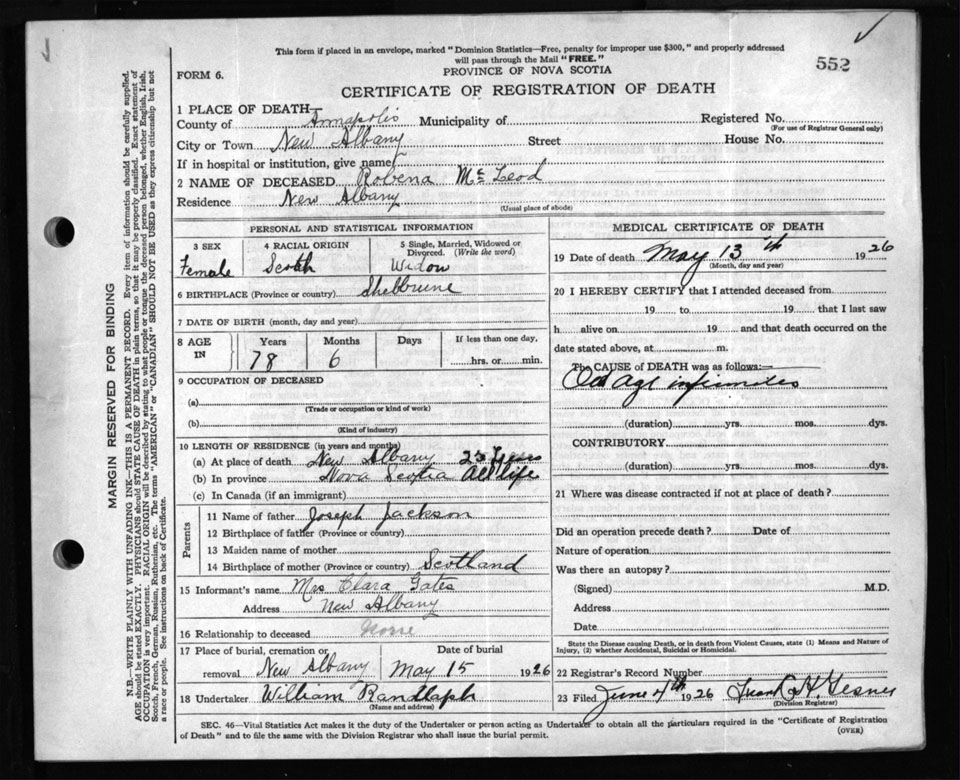 This form if placed in an envelope, marked "Dominion Statistics—Free, penalty for improper use $300," and properly addressed
will pass through the Mail "FREE."
552
FORM 6.
PROVINCE OF NOVA SCOTIA
CERTIFICATE OF REGISTRATION OF DEATH
1 PLACE OF DEATH—
County of Annapolis Municipality of Registered No.
(For use of Registrar General only)
City or Town New Albany Street House No.
If in hospital or institution, give name
2 NAME OF DECEASED Robena Mc Leod
Residence New Albany
(Usual place of abode)
MARGIN RESERVED FOR BINDING
N.B.—WRITE PLAINLY WITH UNFADING INK—THIS IS A PERMANENT RECORD. Every item of information should be carefully supplied.
AGE should be stated EXACTLY. PHYSICIANS should STATE CAUSE OF DEATH in plain terms, so that it may be properly classified. Exact statement of
OCCUPATION is very important. RACIAL ORIGIN will be described by stating to what people or tongue the deceased person belonged, whether English, Irish,
Scotch, French, German, Russian, Ruthenian, etc. The terms "AMERICAN" or "CANADIAN" SHOULD NOT BE USED as they express citizenship but not
a race or people. See instructions on back of Certificate.
PERSONAL AND STATISTICAL INFORMATION
3 SEX 4 RACIAL ORIGIN 5 Single, Married, Widowed or
Divorced. (Write the word)
Female Scotch Widow
6 BIRTHPLACE (Province or country) Shelburne
7 DATE OF BIRTH (month, day and year)
8 AGE IN Years Months Days If less than one day,
78 6 hrs. or min.
9 OCCUPATION OF DECEASED
(a)
(Trade or occupation or kind of work)
(b)
(Kind of industry)
10 LENGTH OF RESIDENCE (in years and months)
(a) At place of death New Albany
(b) In province Nova Scotia All life
(c) In Canada (if an immigrant)
Parents
11 Name of father Joseph Jackson
12 Birthplace of father (Province or country)
13 Maiden name of mother
14 Birthplace of mother (Province or country) Scotland
15 Informant's name Mrs Clara Gates
Address New Albany
16 Relationship to deceased
17 Place of burial, cremation or Date of burial
removal New Albany May 15 1926
18 Undertaker William Randlaph
(Name and address)
MEDICAL CERTIFICATE OF DEATH
19 Date of death May 13th 1926
(Month, day and year)
20 I HEREBY CERTIFY that I attended deceased from
19 to 19 that I last saw
h alive on 19 and that death occurred on the
date stated above, at m.
The CAUSE of DEATH was as follows:—
Old age
(duration) yrs. mos. dys.
CONTRIBUTORY
(duration) yrs. mos. dys.
21 Where was disease contracted if not at place of death?
Did an operation precede death? Date of
Nature of operation
Was there an autopsy?
(Signed) M.D.
Address
Date
State the Disease causing Death, or in death from Violent Causes, state (1) Means and Nature of
Injury, (2) whether Accidental, Suicidal or Homicidal.
22 Registrar's Record Number
23 Filed June 4th 1926
(Division Registrar)
SEC. 46—Vital Statistics Act makes it the duty of the Undertaker or person acting as Undertaker to obtain all the particulars required in the "Certificate of Registration
of Death" and to file the same with the Division Registrar who shall issue the burial permit.
(OVER)